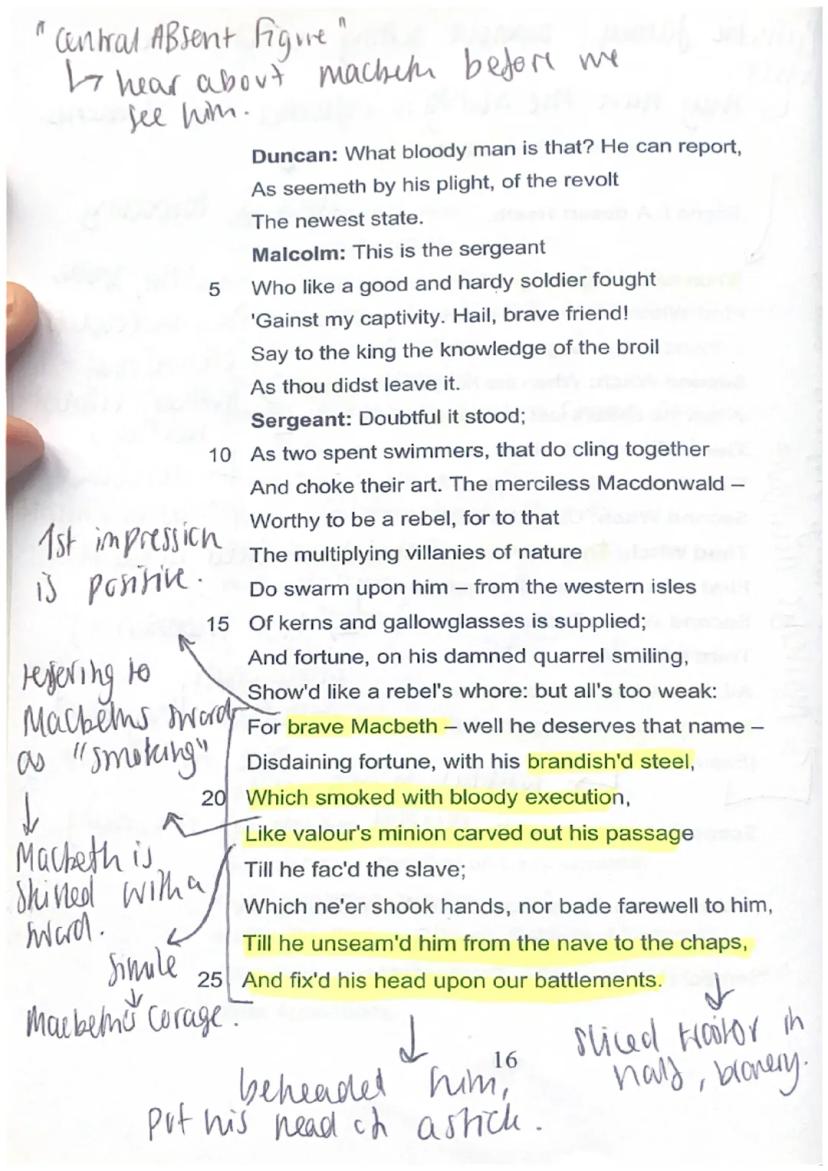 " Central ABsent Figure "
↳ hear about macbeth before we
see him.
Duncan: What bloody man is that? He can report,
As seemeth by his plight, of the revolt
The newest state.
Malcolm: This is the sergeant
5 Who like a good and hardy soldier fought
'Gainst my captivity. Hail, brave friend!
Say to the king the knowledge of the broil
As thou didst leave it.
Sergeant: Doubtful it stood;
10 As two spent swimmers, that do cling together
And choke their art. The merciless Macdonwald –
Worthy to be a rebel, for to that
The multiplying villanies of nature
Do swarm upon him – from the western isles
15 Of kerns and gallowglasses is supplied;
And fortune, on his damned quarrel smiling,
Show'd like a rebel's whore: but all's too weak:
For brave Macbeth – well he deserves that name –
Disdaining fortune, with his brandish'd steel,
20 Which smoked with bloody execution,
Like valour's minion carved out his passage
Till he fac'd the slave;
Which ne'er shook hands, nor bade farewell to him,
Till he unseam'd him from the nave to the chaps,
25 And fix'd his head upon our battlements.
1st impression
is positive.
referring to
Macbeths sword
as "smoking"
↓
Macbeth is
skilled with a
sword.
simile
↓
Macbeth's Corage.
beheaded him,
put his head on a stick.
sliced traitor in
half, bravery.
16